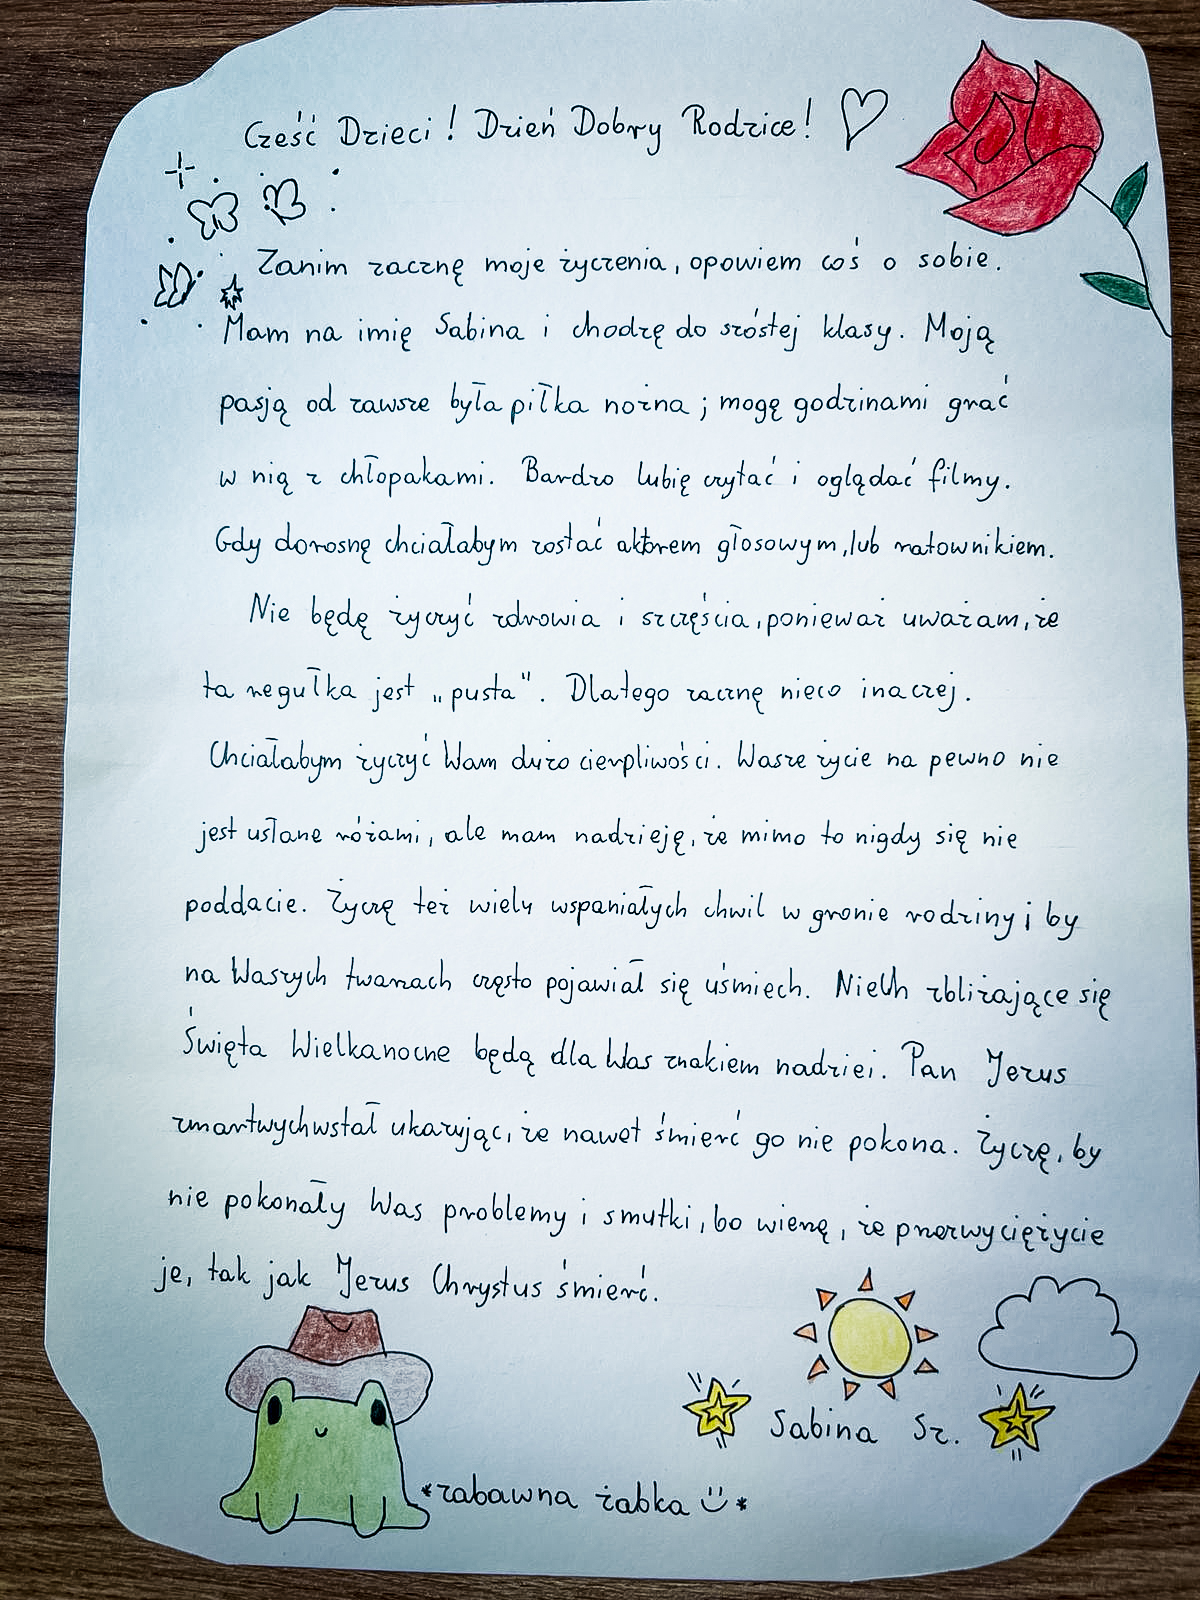 Cześć Dzieci! Dzień Dobry Rodzice!
Zanim zacznę moje życzenia, opowiem coś o sobie.
Mam na imię Sabina i chodzę do szóstej klasy. Moją
pasją od zawsze była piłka nożna; mogę godzinami grać
w nią z chłopakami. Bardzo lubię czytać i oglądać filmy.
Gdy dorosnę chciałabym zostać aktorem głosowym, lub ratownikiem.
Nie będę życzyć zdrowia i szczęścia, ponieważ uważam, że
ta regułka jest „pusta". Dlatego zacznę nieco inaczej.
Chciałabym życzyć Wam dużo cierpliwości. Wasze życie na pewno nie
jest usłane różami, ale mam nadzieję, że mimo to nigdy się nie
poddacie. Życzę też wielu wspaniałych chwil w gronie rodziny i by
na Waszych twarzach często pojawiał się uśmiech. Niech zbliżające się
Święta Wielkanocne będą dla Was znakiem nadziei. Pan Jezus
zmartwychwstał ukazując, że nawet śmierć go nie pokona. Życzę, by
nie pokonały Was problemy i smutki, bo wierzę, że przezwyciężycie
je, tak jak Jezus Chrystus śmierć.
Sabina Sz.
*zabawna żabka ☺*